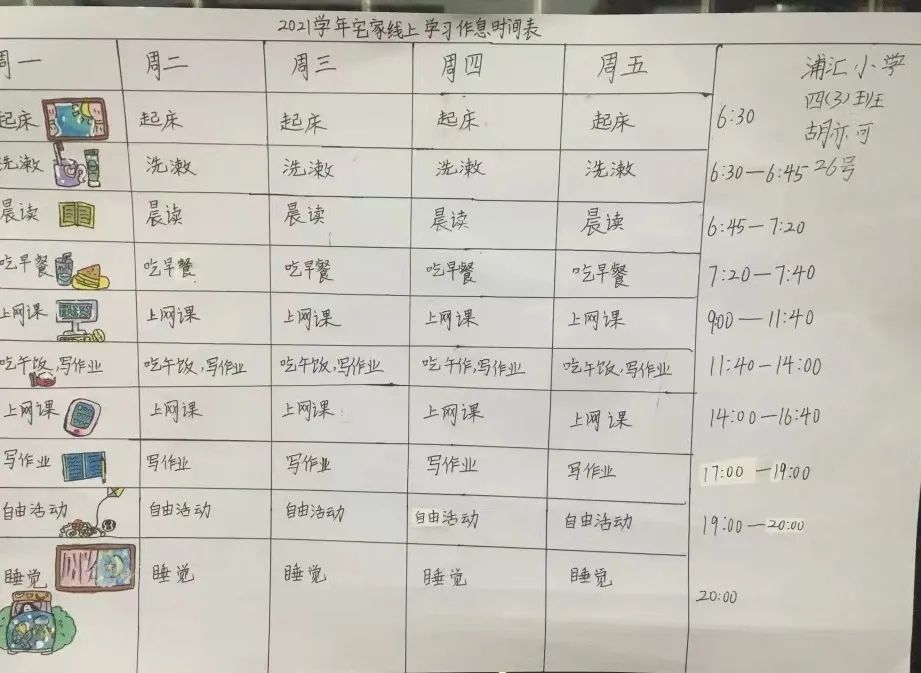 2021学年宅家线上学习作息时间表
周一 周二 周三 周四 周五 浦汇小学
四(3)班
胡亦可
26号
起床 起床 起床 起床 起床 6:30
洗漱 洗漱 洗漱 洗漱 洗漱 6:30—6:45
晨读 晨读 晨读 晨读 晨读 6:45—7:20
吃早餐 吃早餐 吃早餐 吃早餐 吃早餐 7:20—7:40
上网课 上网课 上网课 上网课 上网课 9:00—11:40
吃午饭,写作业 吃午饭,写作业 吃午饭,写作业 吃午作,写作业 吃午饭,写作业 11:40—14:00
上网课 上网课 上网课 上网课 上网课 14:00—16:40
写作业 写作业 写作业 写作业 写作业 17:00—19:00
自由活动 自由活动 自由活动 自由活动 自由活动 19:00—20:00
睡觉 睡觉 睡觉 睡觉 睡觉 20:00